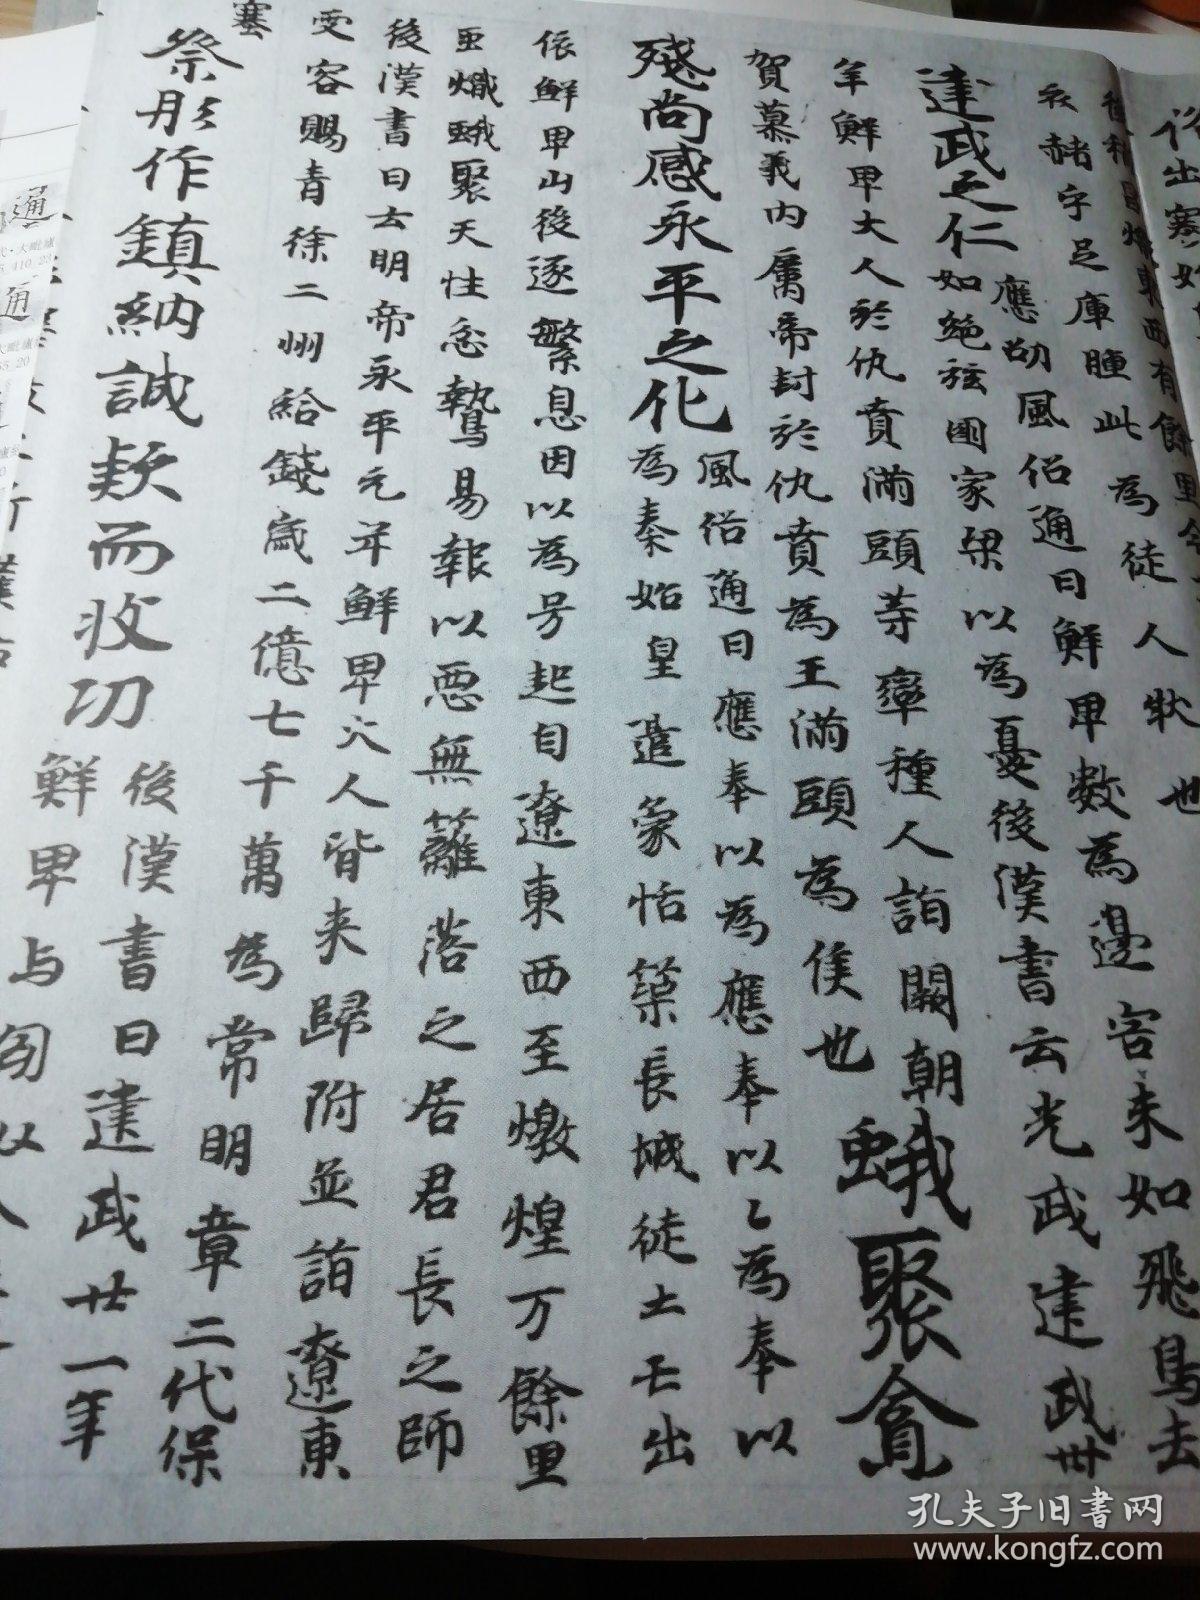 赭字足庫腫此為徒人狀也
應劭風俗通曰鮮卑數為邊害来如飛鳥去
建武之仁
如絶弦國家以為憂後漢書云光武建武卅
年鮮卑大人於仇賁滿頭等率種人詣闕朝
賀慕義内属帝封於仇賁為王滿頭為侯也
蛾聚貪
殘尚感永平之化
風俗通曰應奉以為應奉以〻為奉以
為秦始皇遣蒙恬築長城徒士亡出
依鮮卑山後遂繁息因以為号起自遼東西至燉煌万餘里
亘熾蛾聚天性忿鷙易報以悪無籬落之居君長之師
後漢書曰去明帝永平元年鮮卑大人皆来歸附並詣遼東
受容賜青徐二州給錢歳二億七千萬為常明章二代保
塞
祭肜作鎮納誠款而收功
後漢書曰建武廿一年
鮮卑与匈奴入
孔夫子旧书网
www.kongfz.com